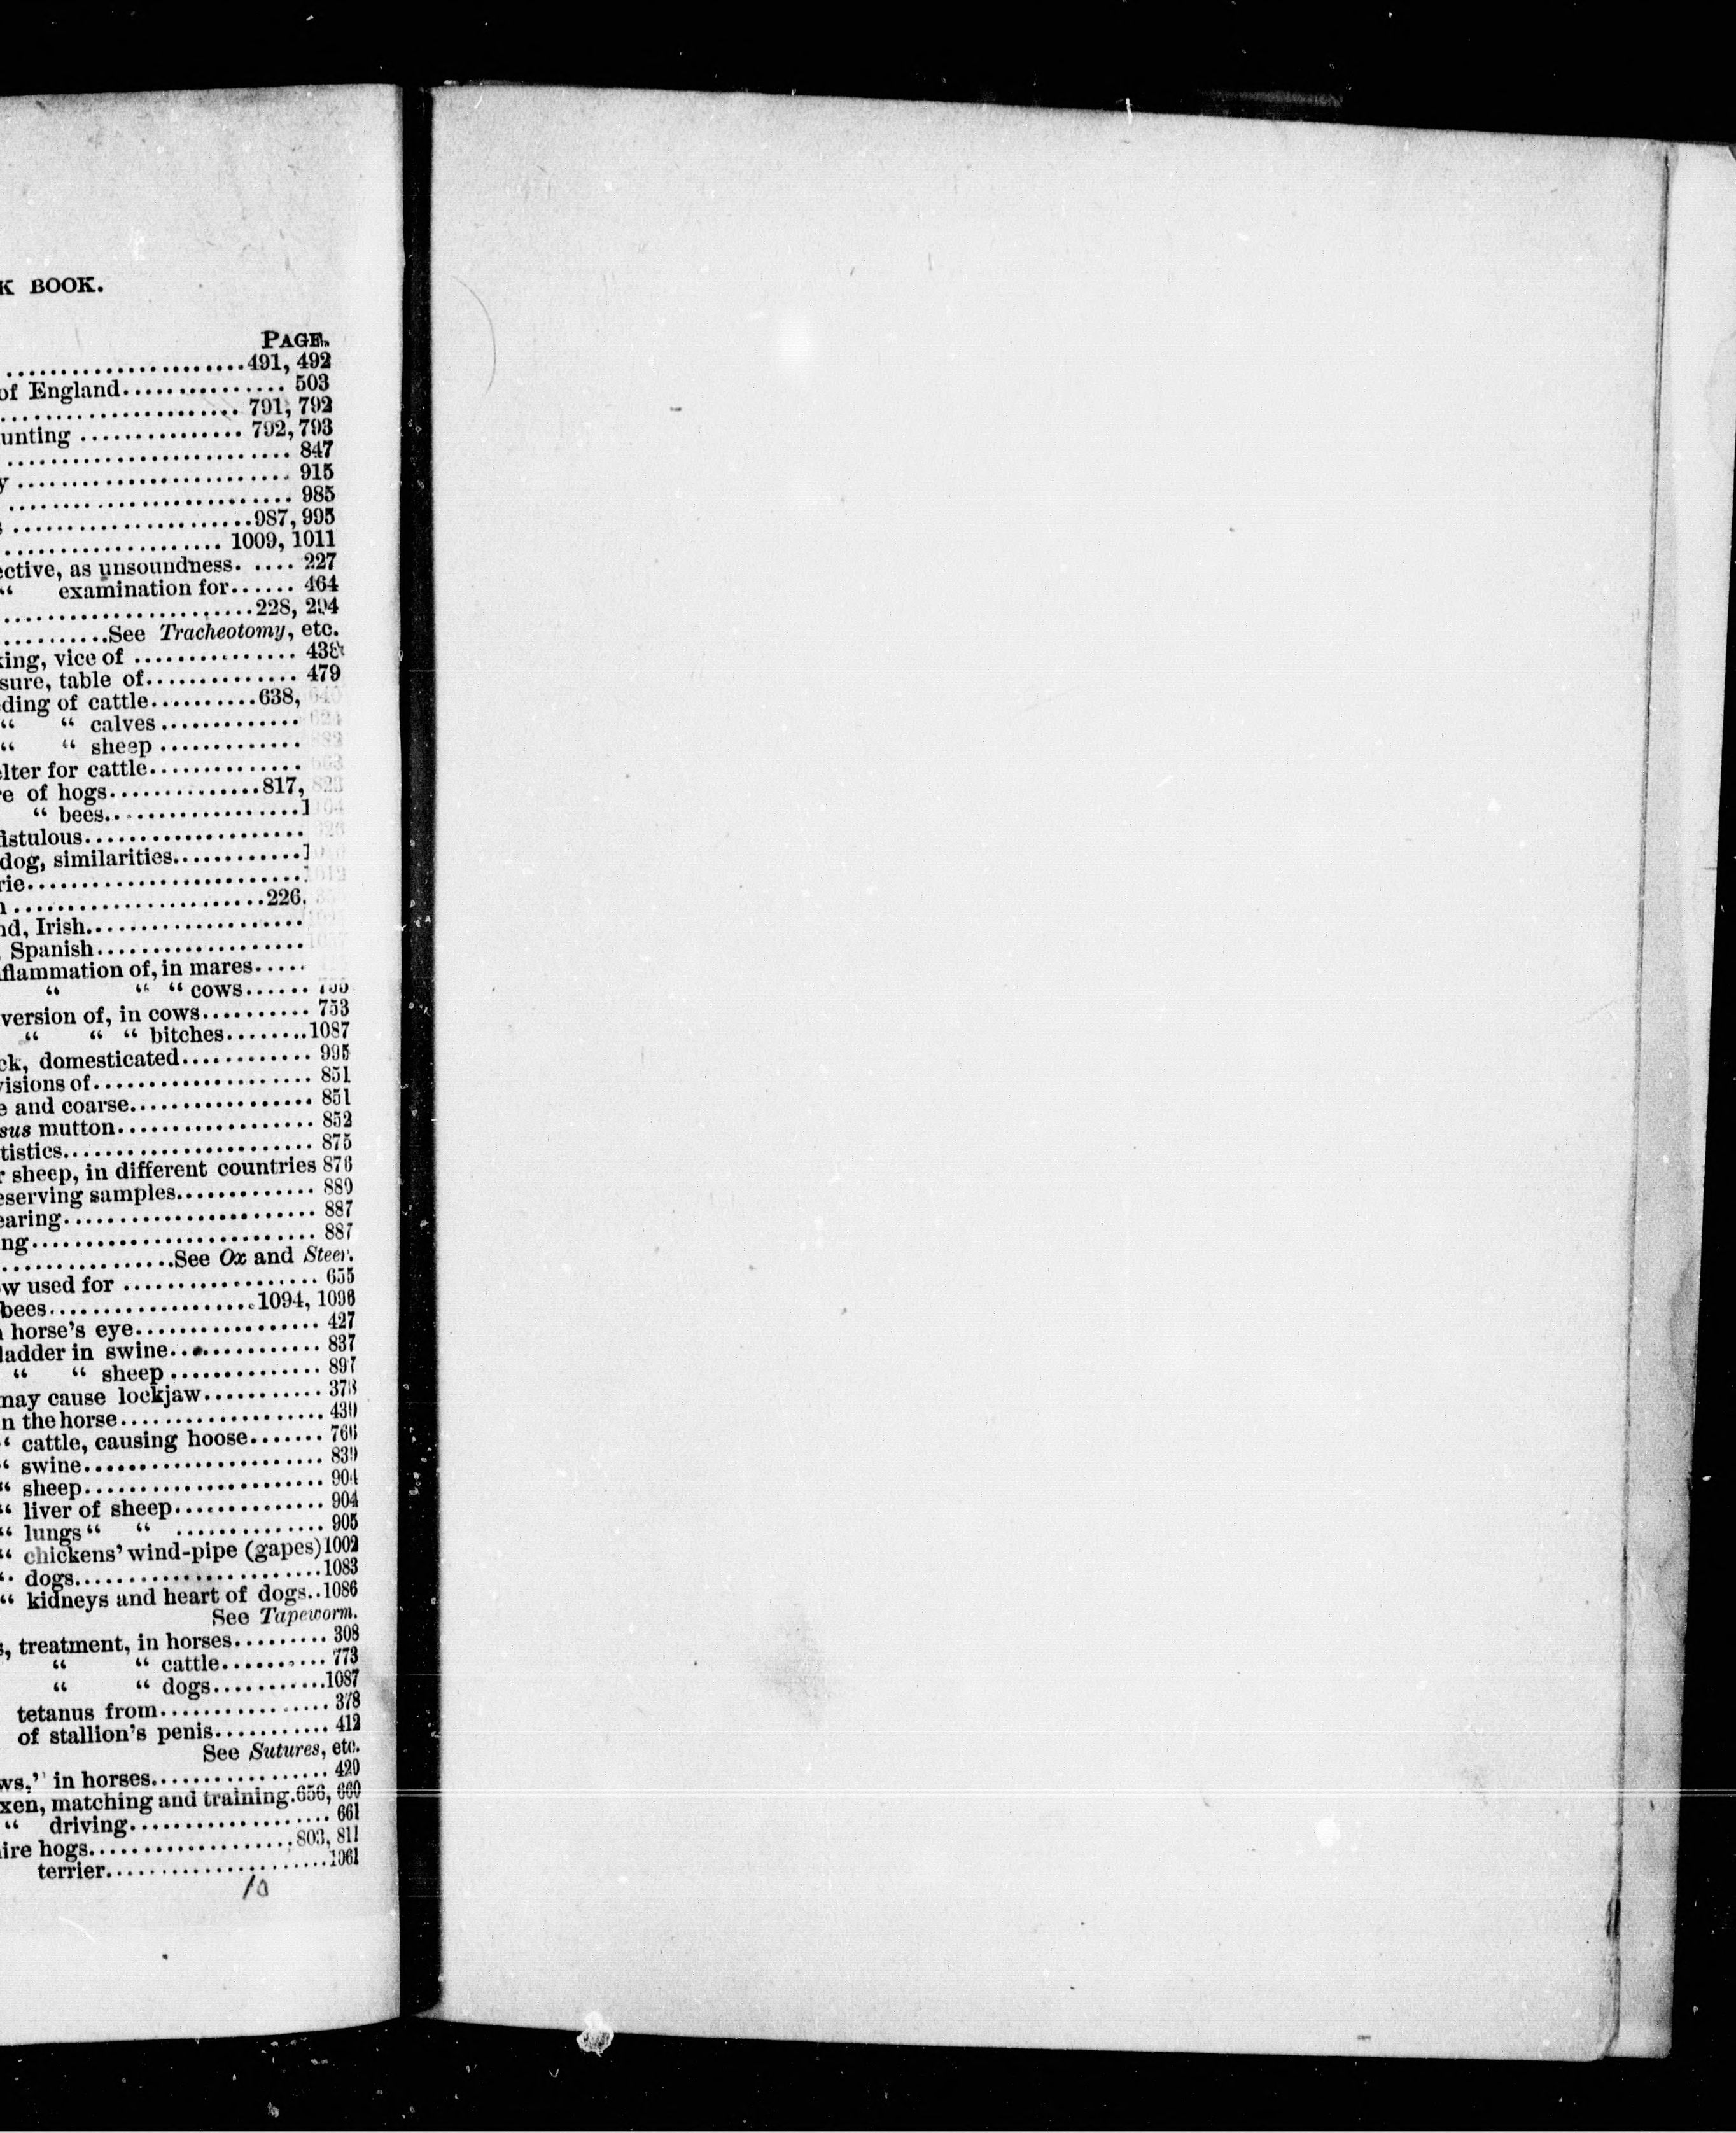 K BOOK.
PAGE.
491, 492
of England 503
791, 792
unting 792, 793
847
y 915
985
s 987, 995
1009, 1011
ective, as unsoundness. 227
“ examination for 464
228, 294
See Tracheotomy, etc.
king, vice of 438
sure, table of 479
ding of cattle 638,
“ “ calves
“ “ sheep
elter for cattle
re of hogs 817,
“ bees
fistulous
dog, similarities
rie
n 226,
nd, Irish
Spanish
flammation of, in mares
“ “ “ cows
version of, in cows 753
“ “ “ bitches 1087
ck, domesticated 995
visions of 851
e and coarse 851
sus mutton 852
tistics 875
r sheep, in different countries 876
eserving samples 889
earing 887
ng 887
See Ox and Steer.
ow used for 655
bees 1094, 1096
n horse's eye 427
ladder in swine 837
“ “ sheep 897
may cause lockjaw 378
n the horse 430
“ cattle, causing hoose 766
“ swine 839
“ sheep 904
“ liver of sheep 904
“ lungs “ “ 905
“ chickens' wind-pipe (gapes) 1002
“ dogs 1083
“ kidneys and heart of dogs 1086
See Tapeworm.
s, treatment, in horses 308
“ “ cattle 773
“ “ dogs 1087
tetanus from 378
of stallion's penis 412
See Sutures, etc.
ws,” in horses 420
xen, matching and training 656, 660
“ driving 661
ire hogs 803, 811
terrier 1061
10